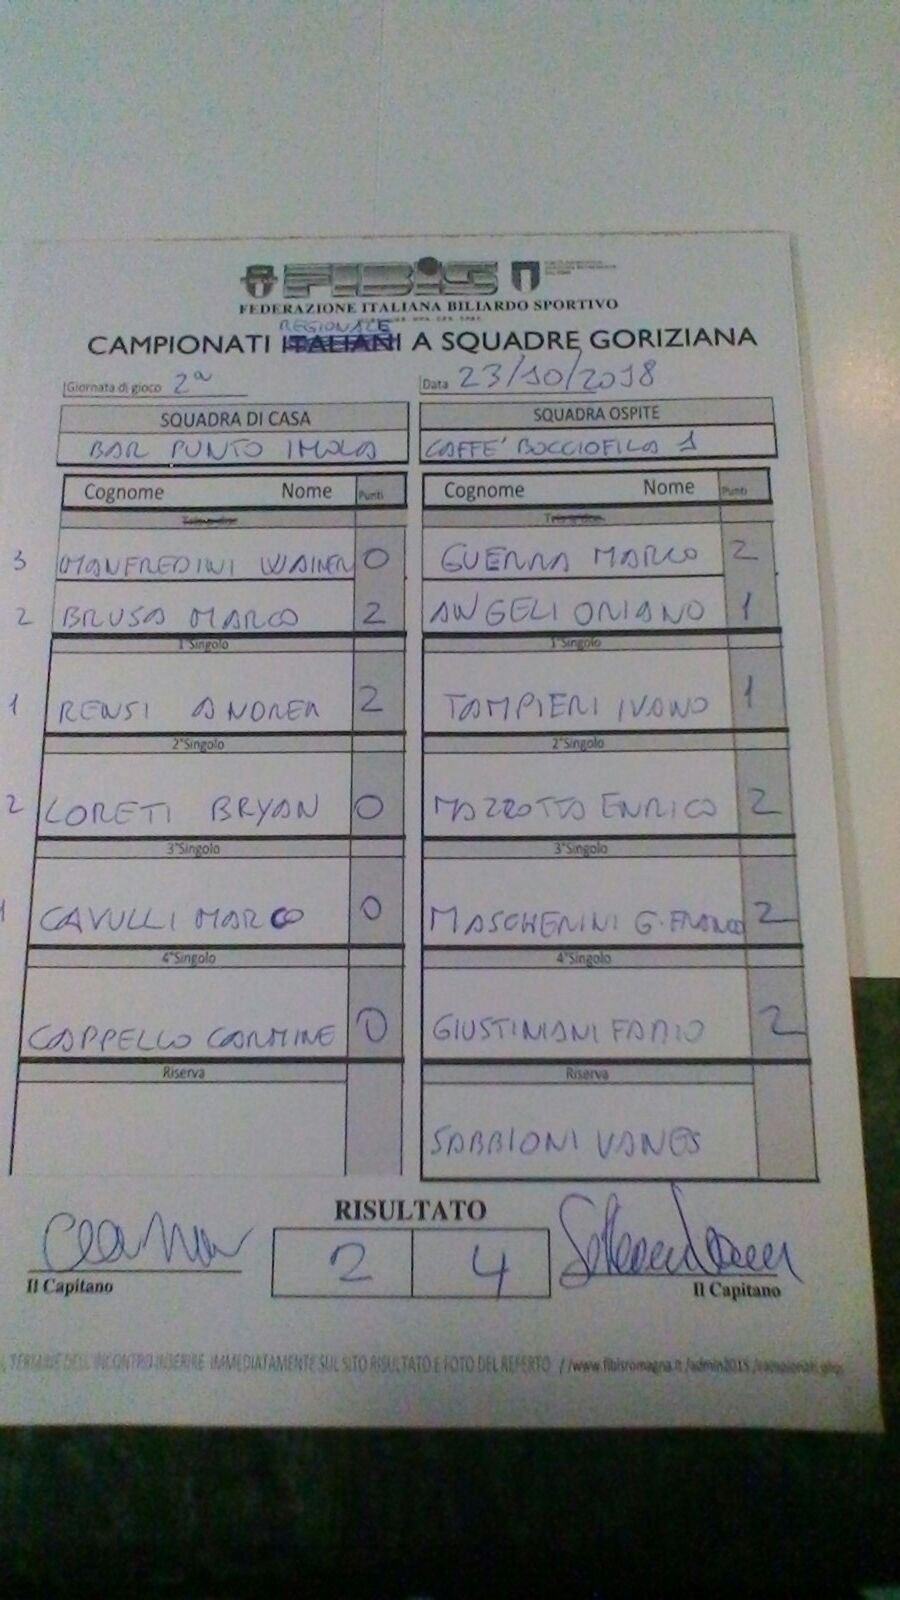 FIBiS
FEDERAZIONE ITALIANA BILIARDO SPORTIVO
REGIONALE
CAMPIONATI ITALIANI A SQUADRE GORIZIANA
Giornata di gioco 2ª Data 23/10/2018
SQUADRA DI CASA SQUADRA OSPITE
BAR PUNTO IMOLA CAFFE' BOCCIOFILA 1
Cognome Nome Punti Cognome Nome Punti
3 MANFREDINI WAINER 0 GUERRA MARCO 2
2 BRUSA MARCO 2 ANGELI ORIANO 1
1°Singolo 1°Singolo
1 RENSI ANDREA 2 TAMPIERI IVANO 1
2°Singolo 2°Singolo
2 LORETI BRYAN 0 MAZZOTTA ENRICO 2
3°Singolo 3°Singolo
1 CAVULLI MARCO 0 MASCHERINI G.FRANCO 2
4°Singolo 4°Singolo
CAPPELLO CARMINE 0 GIUSTINIANI FABIO 2
Riserva Riserva
SABBIONI VANES
RISULTATO
2 4
Il Capitano Il Capitano
TERMINE DELL'INCONTRO INSERIRE IMMEDIATAMENTE SUL SITO RISULTATO E FOTO DEL REFERTO //www.fibisromagna.it/admin2015/campionati.php